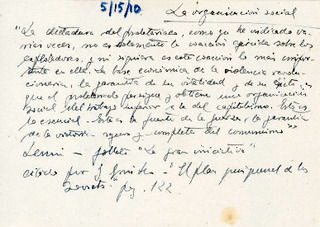 5/15/10
La organización social
"La dictadura del proletariado, como ya he indicado va-
rias veces, no es solamente la coacción ejercida sobre los
explotadores, y ni siquiera es esta coacción lo más impor-
tante en ella. La base económica de la violencia revolu-
cionaria, la garantía de su vitalidad y de su éxito, es
que el proletariado persigue y obtiene una organización
social del trabajo superior a la del capitalismo. Esto es
lo esencial. Esta es la fuente de la fuerza y la garantía
de la victoria segura y completa del comunismo"
Lenin - folleto "La gran iniciativa"
citado por J - "El plan quinquenal de los
Soviets" pag. 122